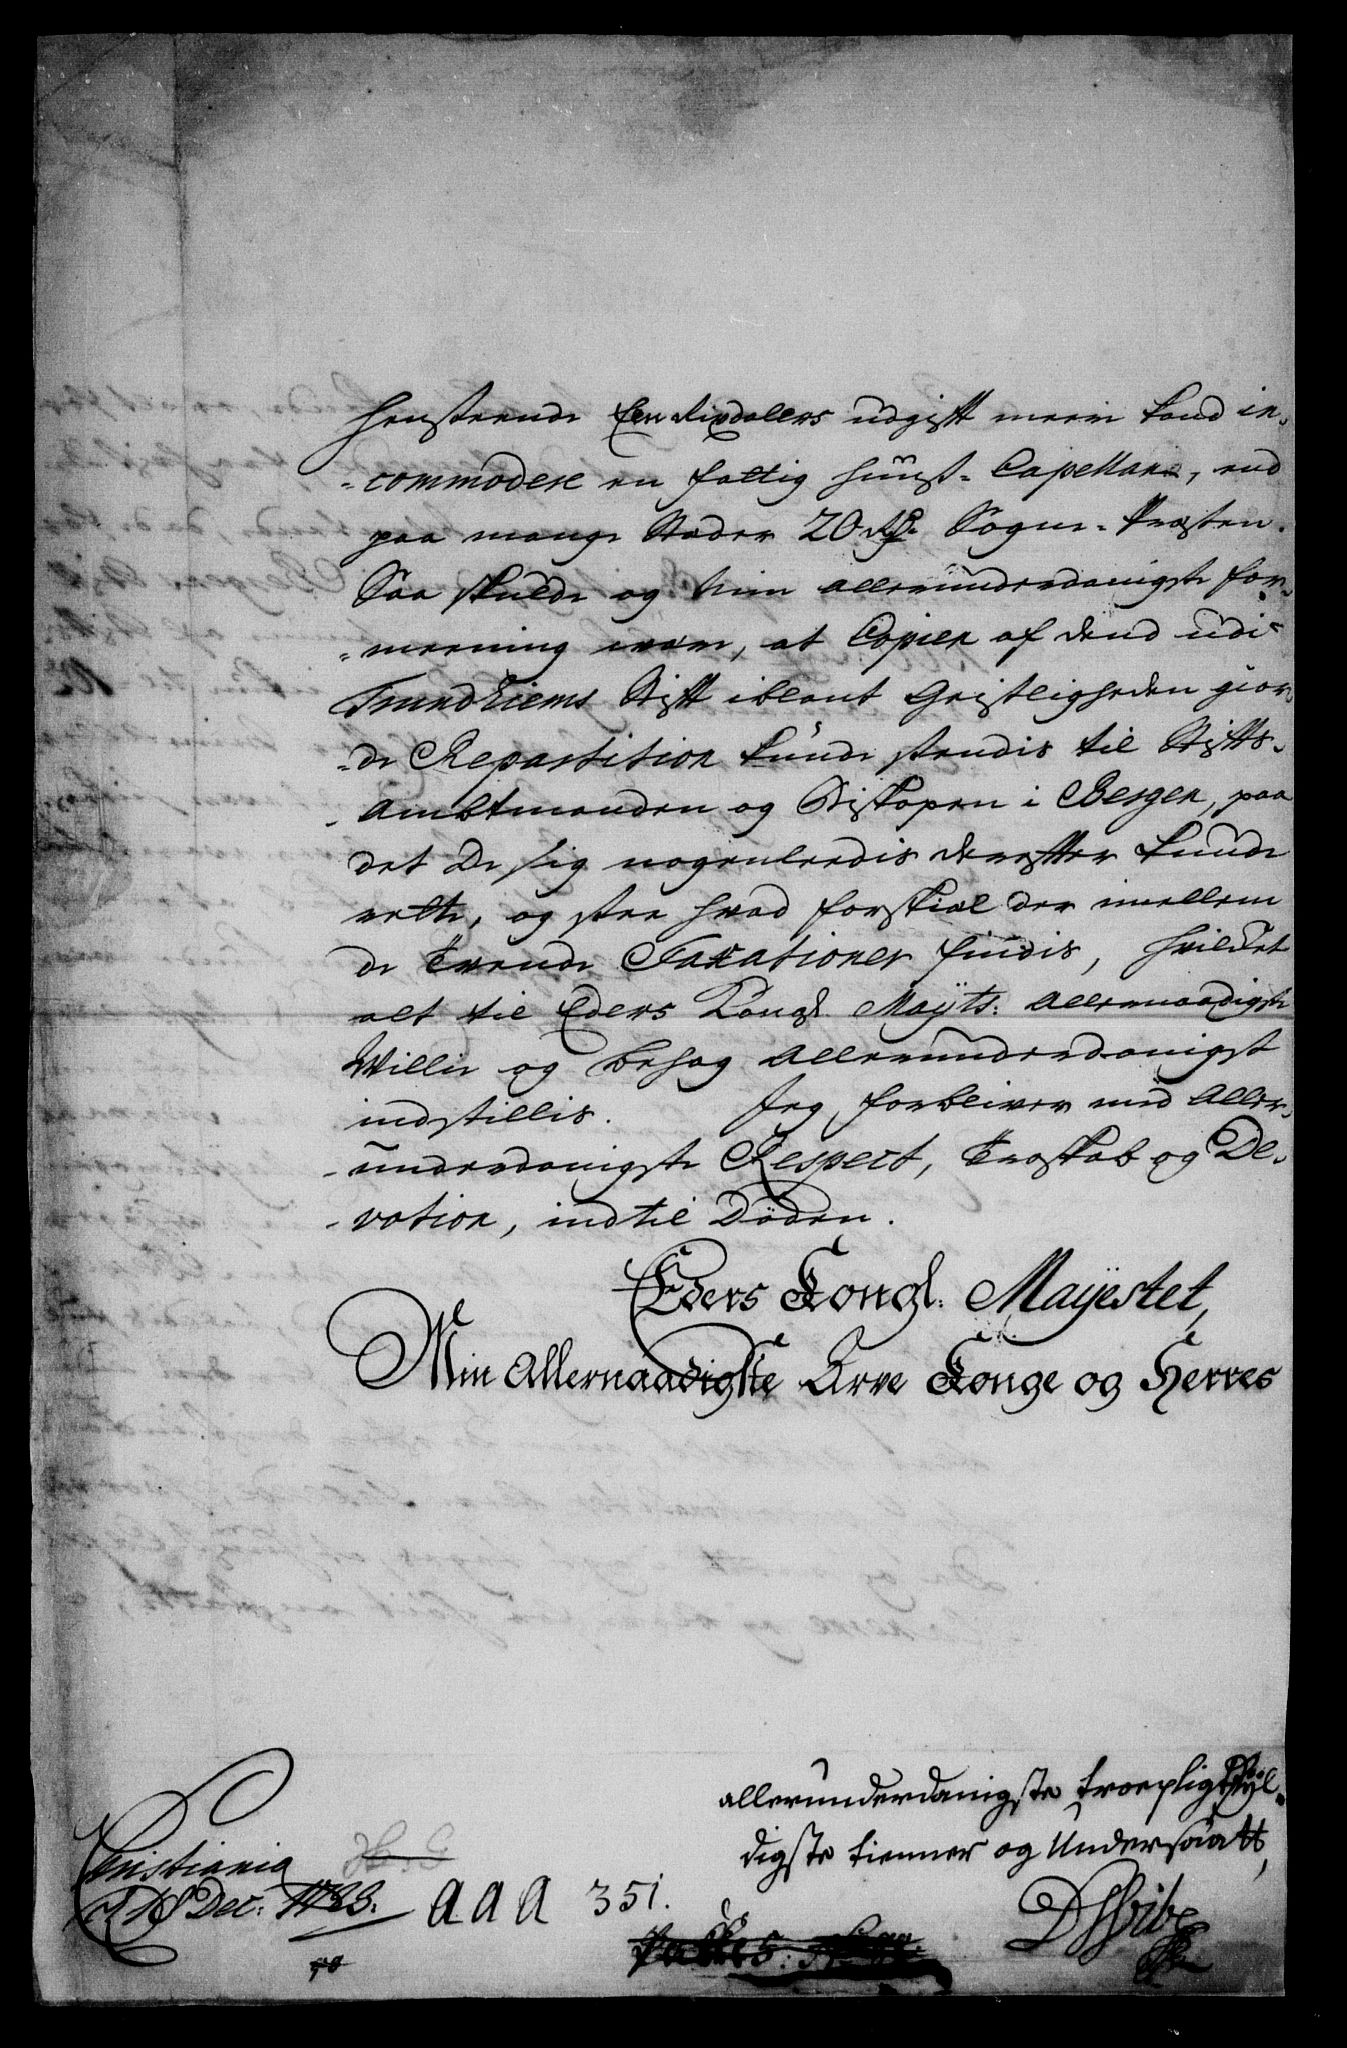 henseende Een Rixdalers udgift meere kand in-
-commodere en fattig huus-Capellan, end
paa mange Stæder 20 Rd. Sogne-Præsten.
Saa skulde og min allerunderdanigste for-
-meening være, at Copien af dend udi
Trundhiems Stift iblant Geistligheden gior-
-de Repartition kunde sendis til Stifts-
-Ambtmanden og Biskopen i Bergen, paa
det De sig nogenleedis derefter kunde
rette, og see hvad forskiæl der imellem
de tvende Taxationer findis, hvilcket
alt til Eders Kongl. Mayts: Allernaadigste
Willie og behag Allerunderdanigst
indstillis. Jeg forbliver med Aller-
-underdanigste Respect, troskab og De-
-votion, indtil Døden.
Eders Kongl. Mayestet,
Min Allernaadigste Arve Konge og Herres
allerunderdanigste troepligtskyl-
digste tienner og Undersaatt,
Christiania
d. 18 Dec: 1728.
aaa 351.
D Vibe